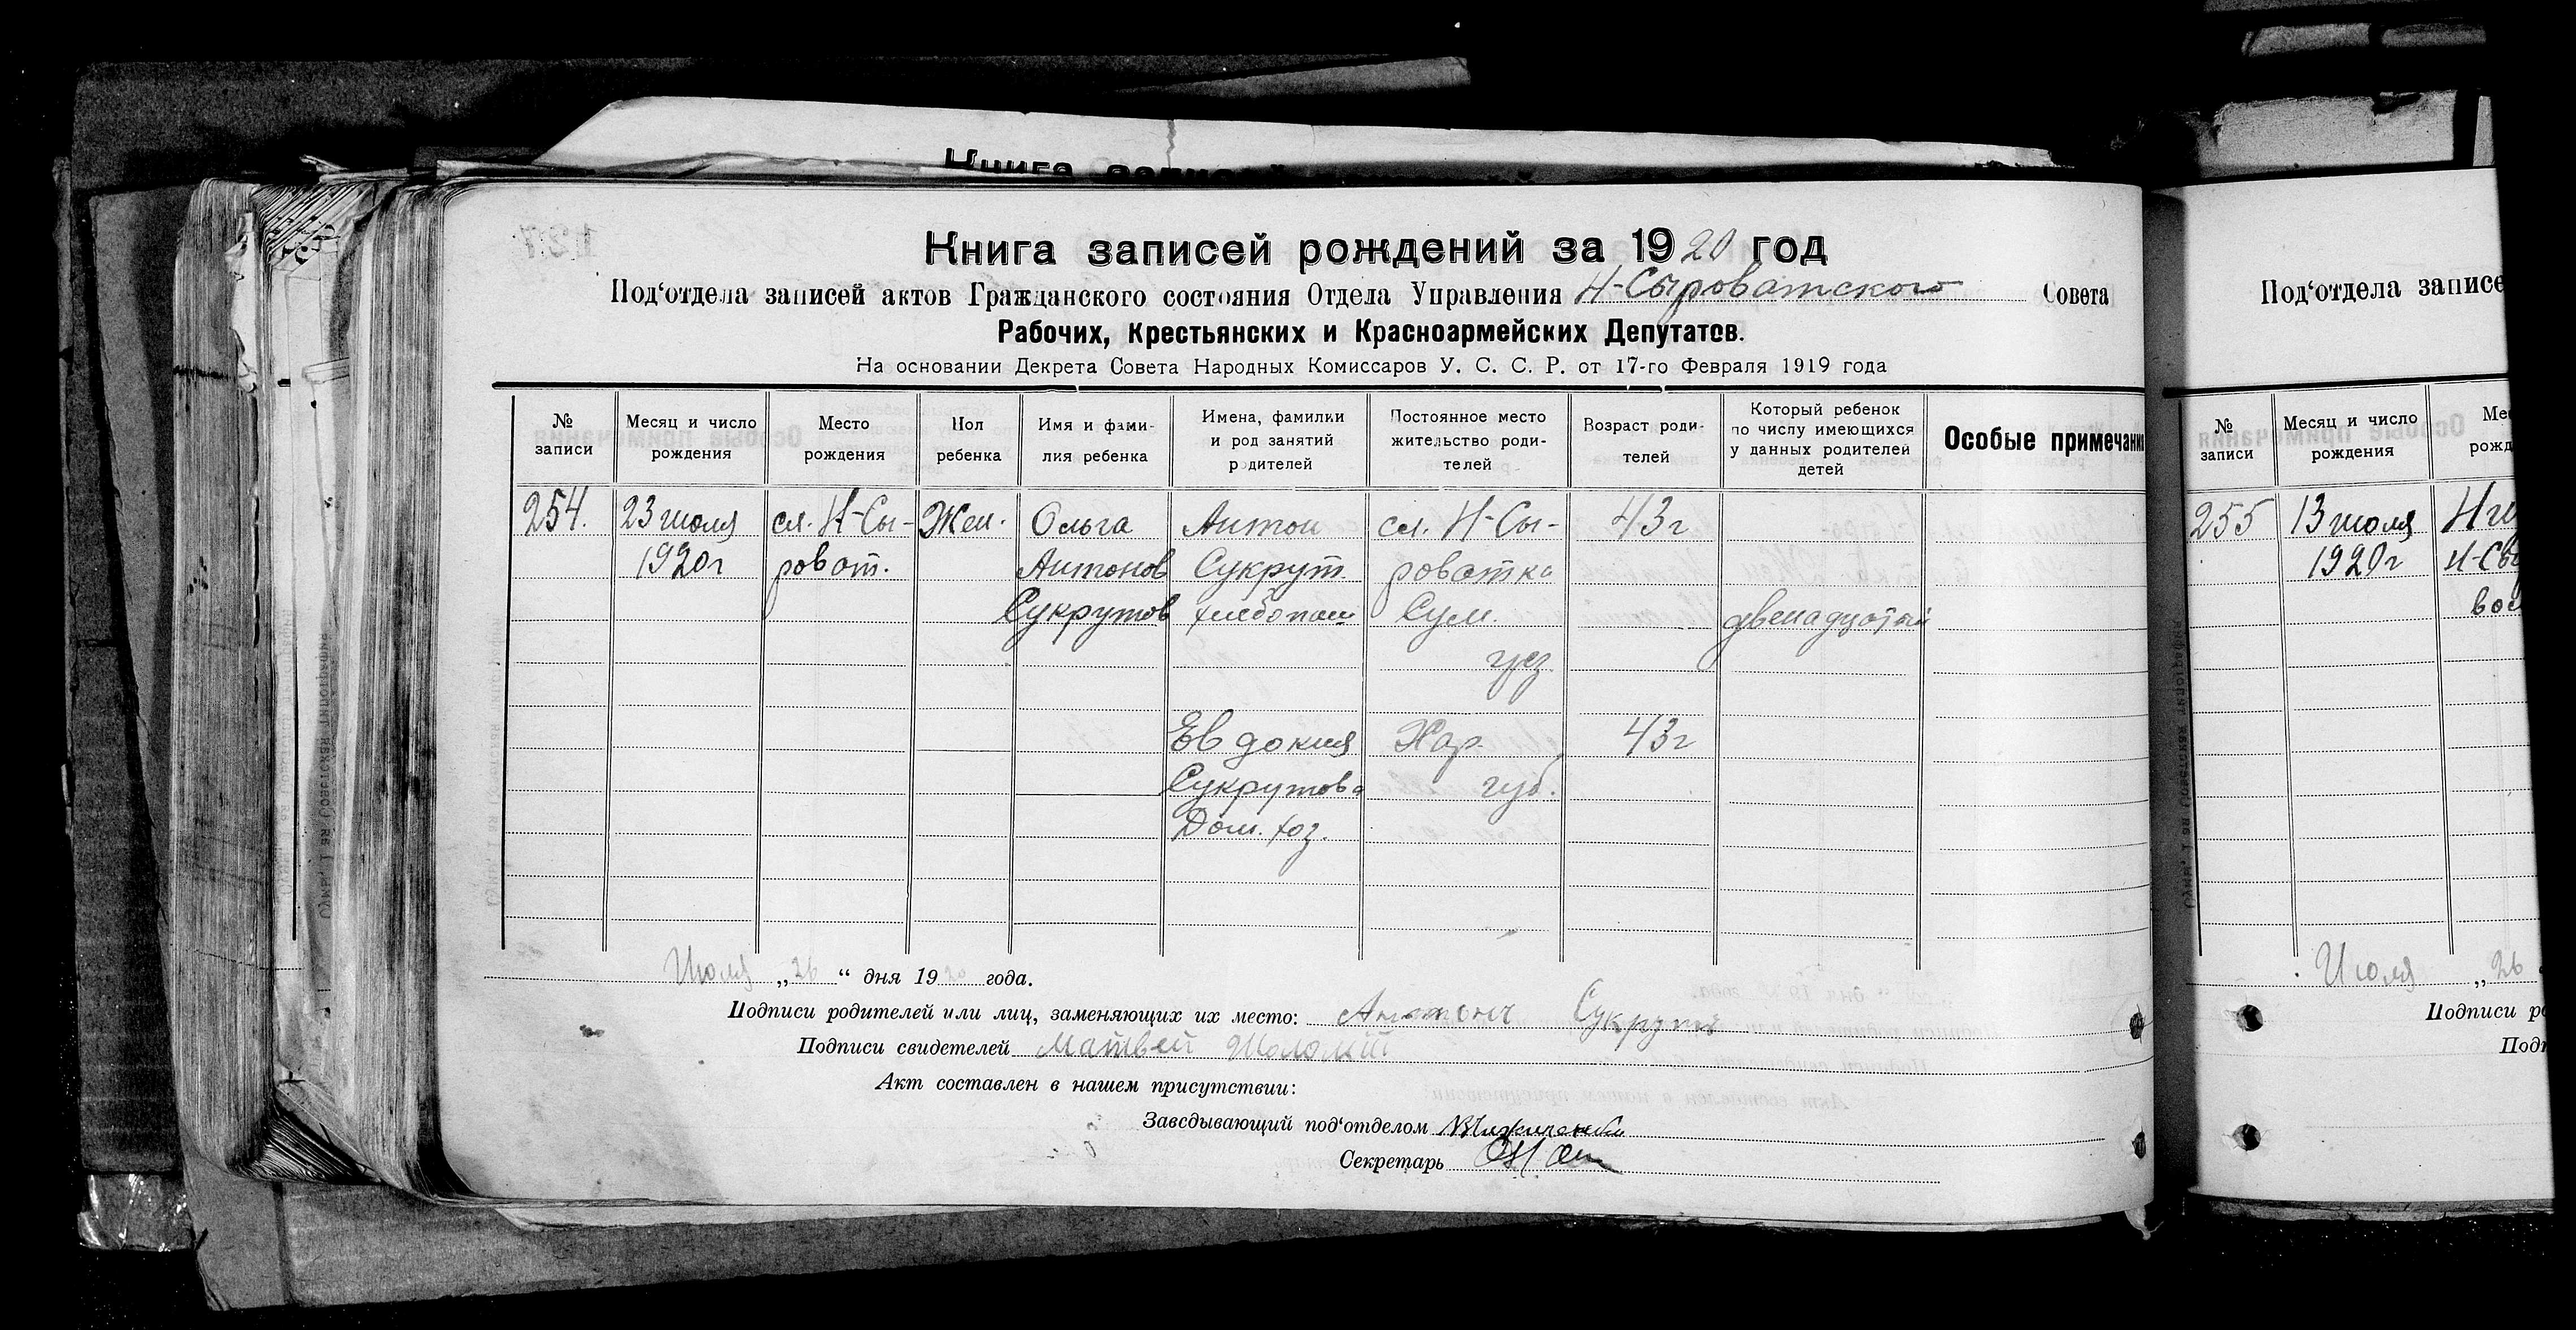 Книга записей
Книга записей рождений за 1920 год
Под‘отдела записей актов Гражданского состояния Отдела Управления Н-Сыроватского Совета
Рабочих, Крестьянских и Красноармейских Депутатов.
На основании Декрета Совета Народных Комиссаров У. С. С. Р. от 17-го Февраля 1919 года
№ записи Месяц и число рождения Место рождения Пол ребенка Имя и фами- лия ребенка Имена, фамилии и род занятий родителей Постоянное место жительство роди- телей Возраст роди- телей Который ребенок по числу имеющихся у данных родителей детей Особые примечания
254. 23 июля сл. Н-Сы- Жен. Ольга Антон сл. Н-Сы- 43 г
1920 г роват. Антонов Сукрут. роватка
Сукрутов хлебопаш Сум. двенадцатый
уез.
Евдокия Хар. 43 г
Сукрутова губ.
Дом. хоз.
Июля „26“ дня 1920 года.
Подписи родителей или лиц, заменяющих их место: Антонъ Сукрутъ
Подписи свидетелей Матвей Шоломій
Акт составлен в нашем присутствии:
Заведывающий под‘отделом
Секретарь
Под‘отдела записе
№ записи Месяц и число рождения Мес рожд
255 13 июля
1920 г Н-Сы
Июля „26
Подписи ро
Подп